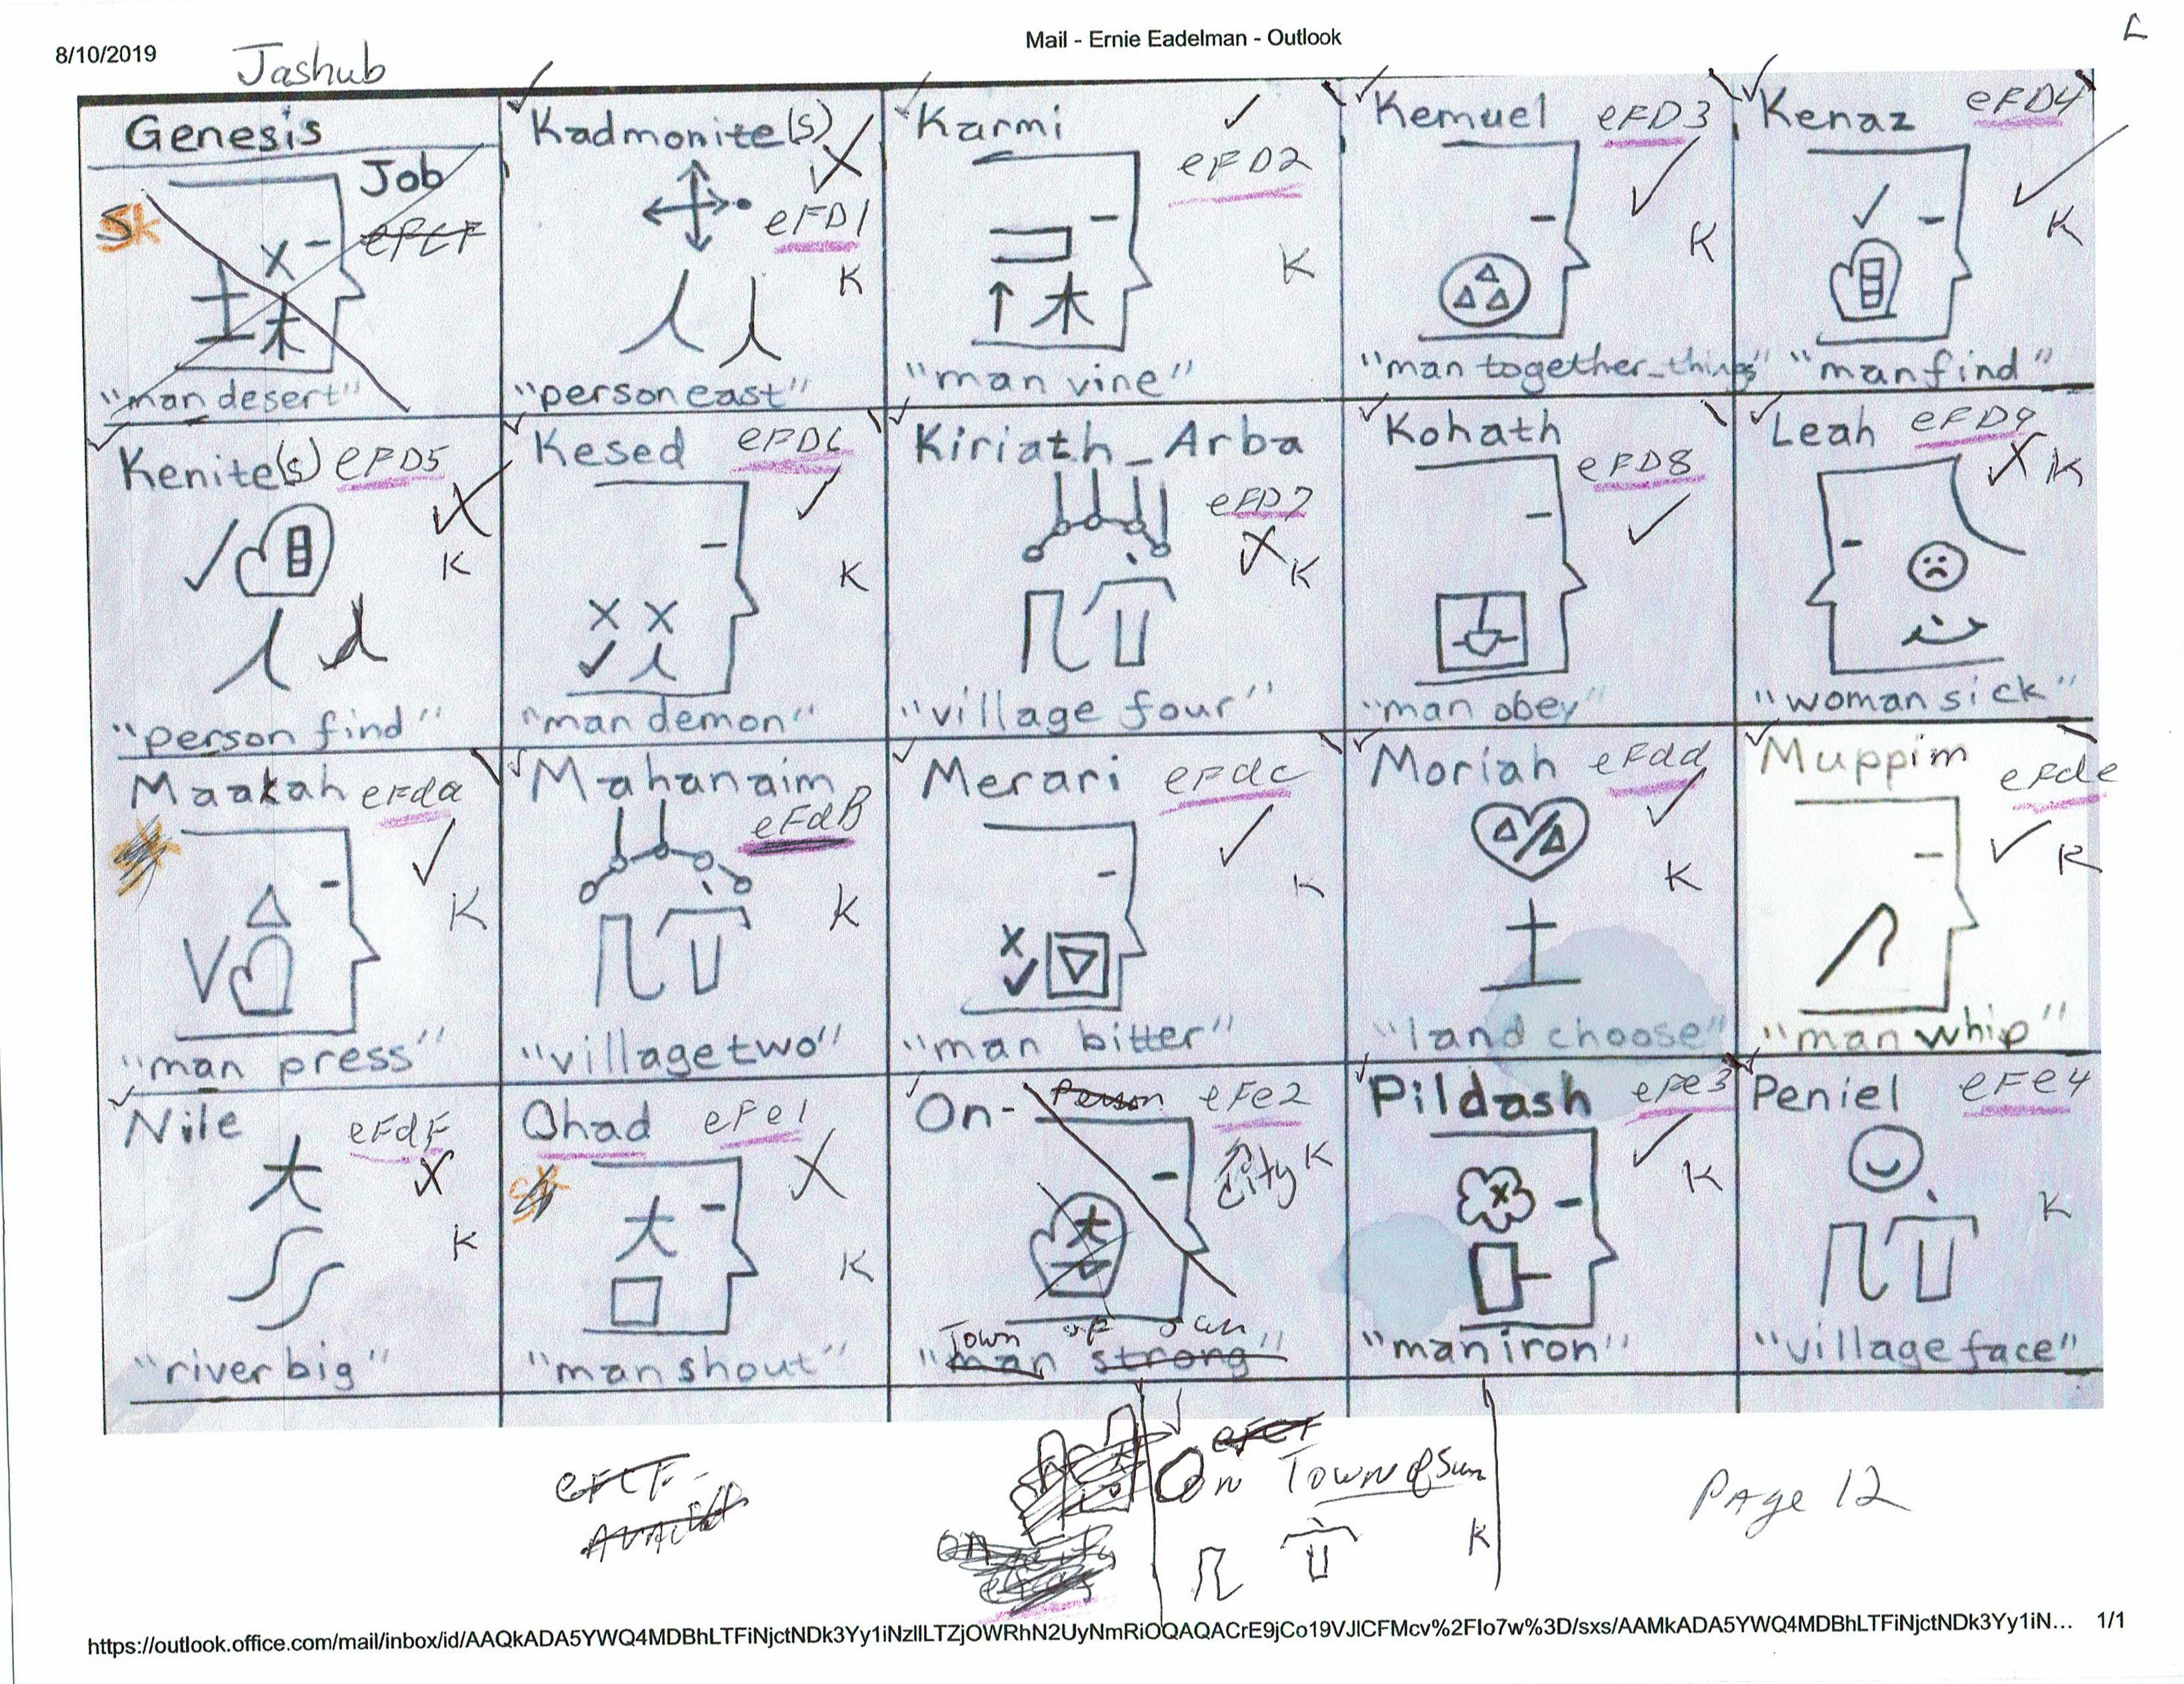 8/10/2019
Mail - Ernie Eadelman - Outlook
Jashub
Genesis
Job
eFCF
Sk
"man desert"
Kadmonite(s)
eFD1
K
"person east"
Karmi
eFD2
K
"man vine"
Kemuel eFD3
K
"man together_things"
Kenaz eFD4
K
"man find"
Kenite(s) eFD5
K
"person find"
Kesed eFD6
K
"man demon"
Kiriath_Arba
eFD7
K
"village four"
Kohath
eFD8
"man obey"
Leah eFD9
K
"woman sick"
Maakah eFda
K
"man press"
Mahanaim
eFdB
K
"village two"
Merari eFdc
K
"man bitter"
Moriah eFdd
K
"land choose"
Muppim
eFde
K
"man whip"
Nile eFdF
K
"river big"
Ohad eFe1
K
"man shout"
On- Person eFe2
City K
Town of Sun
"man strong"
Pildash eFe3
K
"man iron"
Peniel eFe4
K
"village face"
eFCF-
Avail
eFCF
On Town of Sun
K
Page 12
https://outlook.office.com/mail/inbox/id/AAQkADA5YWQ4MDBhLTFiNjctNDk3Yy1iNzIlLTZjOWRhN2UyNmRiOQAQACrE9jCo19VJlCFMcv%2FIo7w%3D/sxs/AAMkADA5YWQ4MDBhLTFiNjctNDk3Yy1iN... 1/1